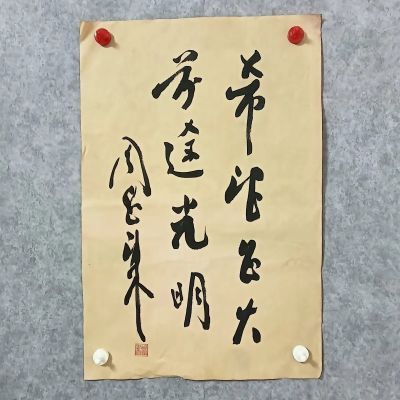 希望大
前途光明
周恩来